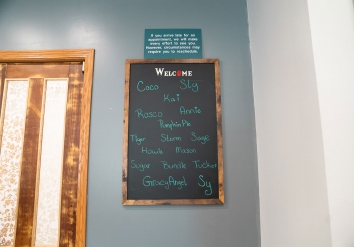 If you arrive late for an
appointment, we will make
every effort to see you.
However, circumstances may
require you to reschedule.
WELCOME
Coco Sly
Kai
Rosco Annie
Pumpkin Pie
Tiger Storm Sage
Howie Mason
Sugar Bundle Tucker
GraceyAngel Sy